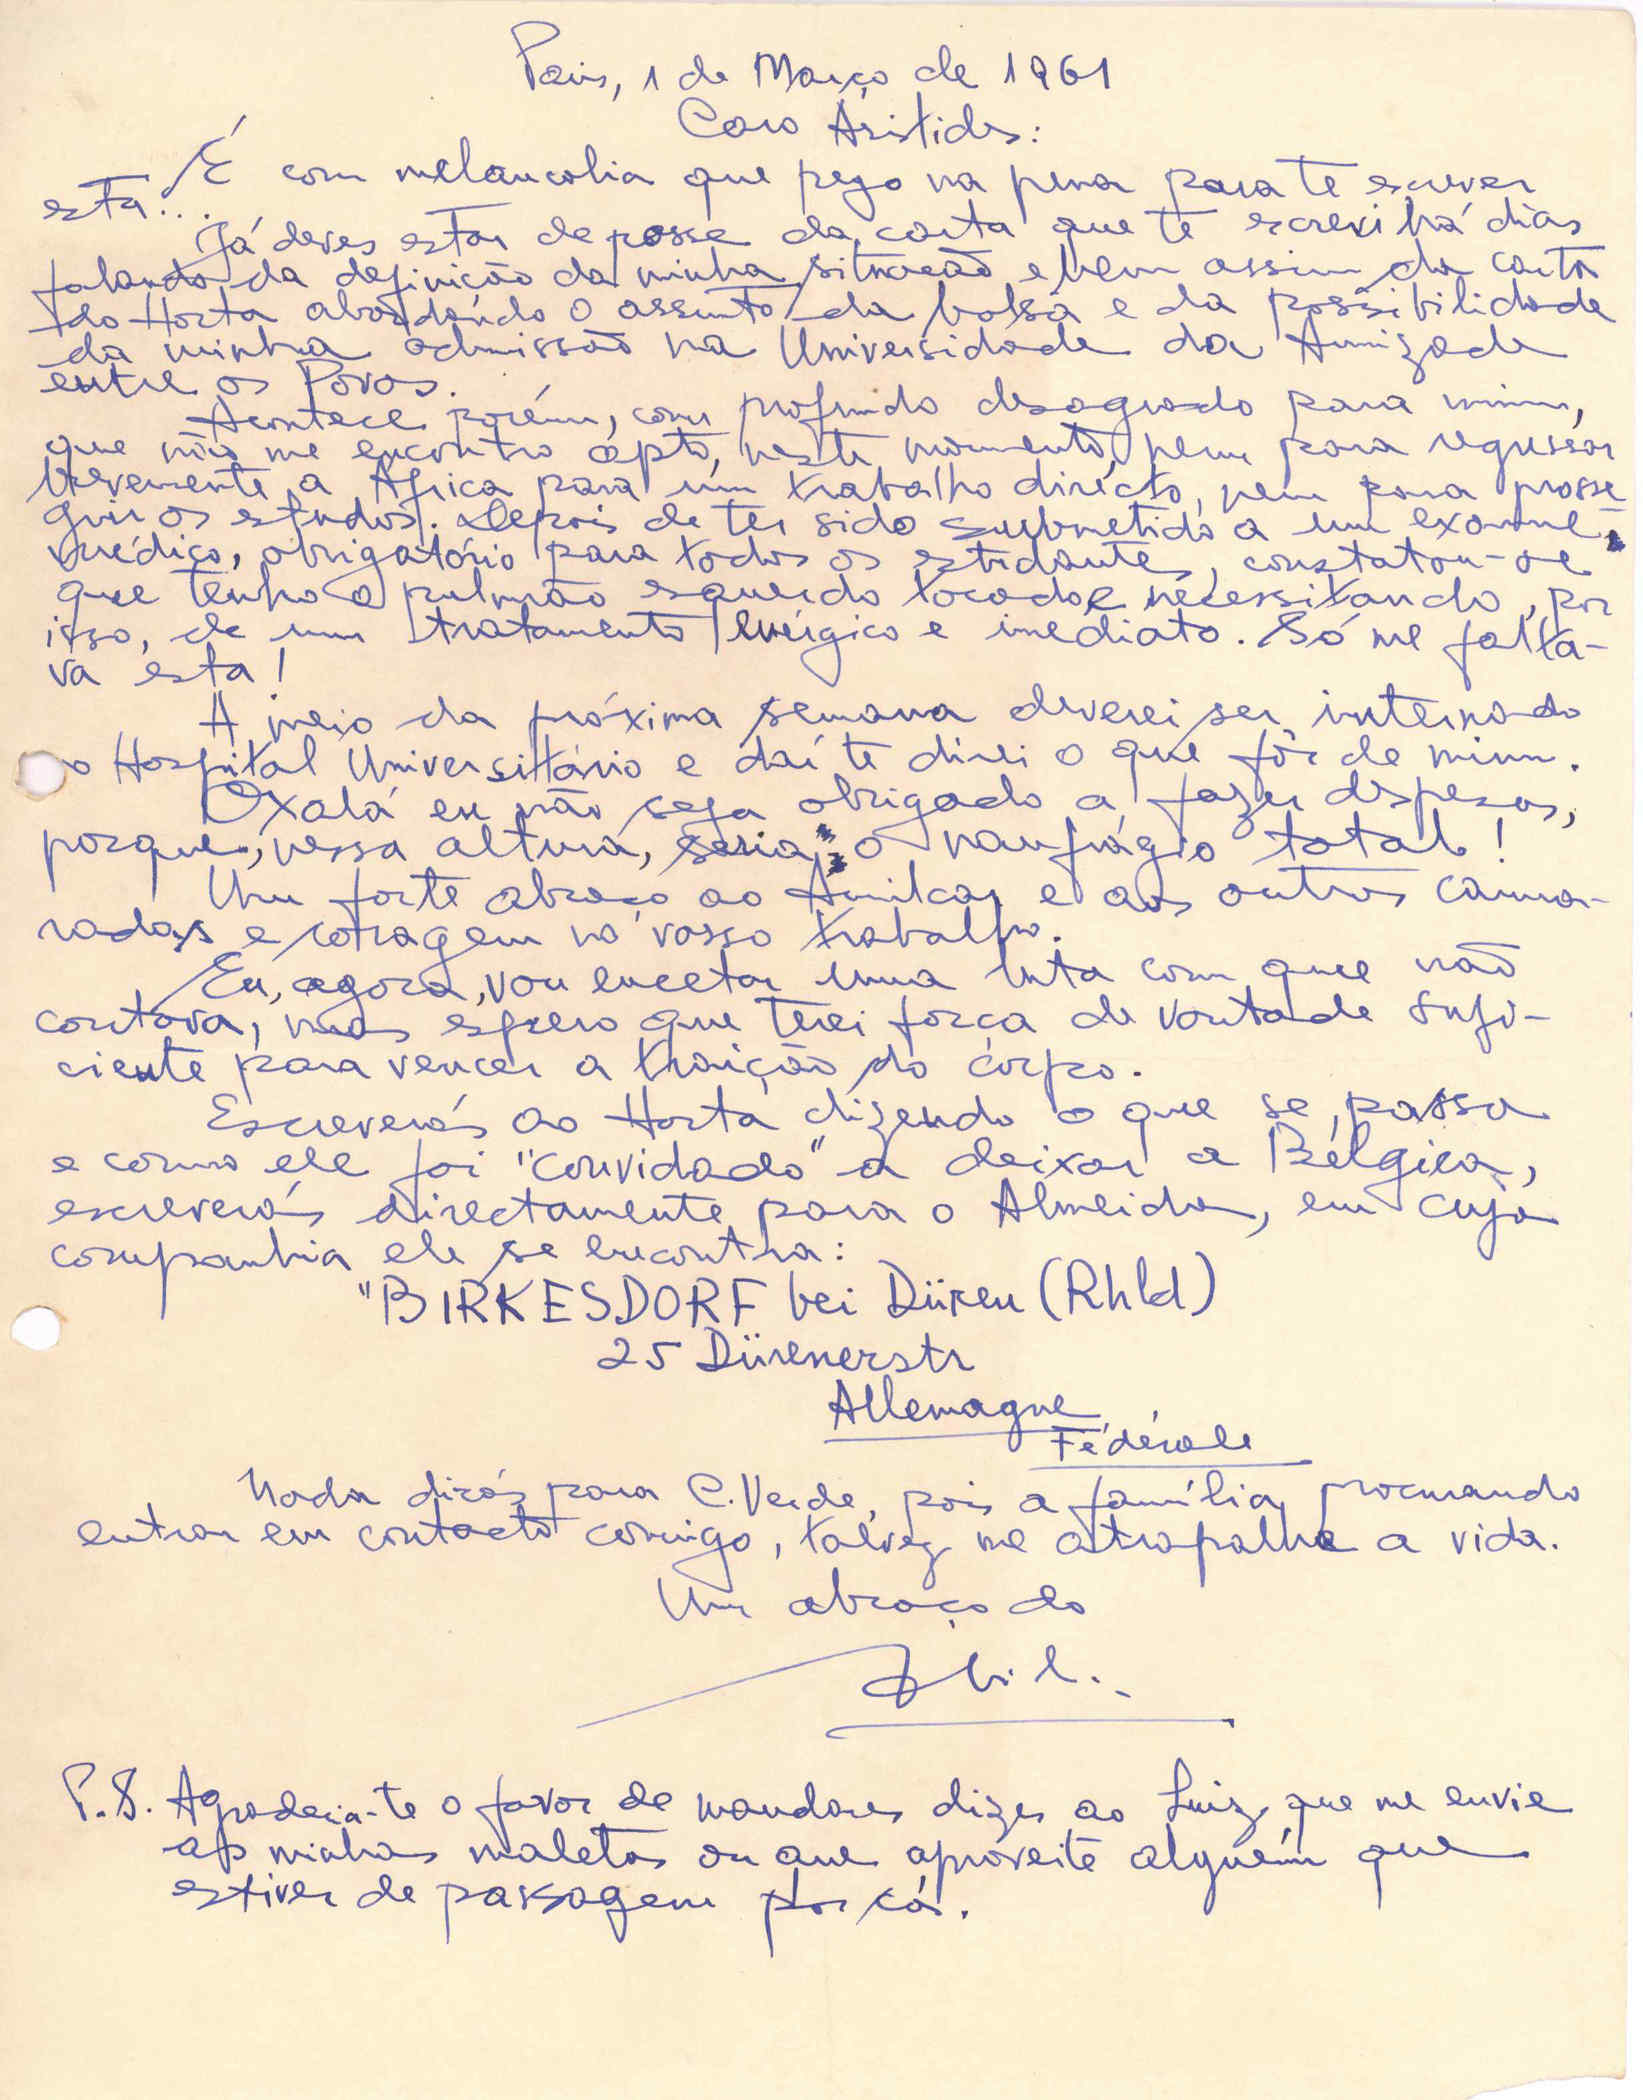 Paris, 1 de Março de 1961
Caro Áristides:
É com melancolia que pego na pena para te escrever
esta...
Já deves estar de posse da carta que te escrevi há dias
falando da definição da minha situação e bem assim da carta
do Horta abordando o assunto da bolsa e da possibilidade
da minha admissão na Universidade da Amizade
entre os Povos.
Acontece porém, com profundo desagrado para mim,
que não me encontro apto, neste momento, nem para regressar
brevemente a África para um trabalho directo, nem para prosse-
guir os estudos. Depois de ter sido submetido a um exame
médico, obrigatório para todos os estudantes, constatou-se
que tenho o pulmão esquerdo tocado e necessitando, por
isso, de um tratamento enérgico e imediato. Só me falta-
va esta!
A meio da próxima semana deverei ser internado
no Hospital Universitário e daí te direi o que fôr de mim.
Oxalá eu não seja obrigado a fazer despesas,
porque, nessa altura, seria o naufrágio total!
Um forte abraço ao Amilcar e aos outros cama-
radas e coragem no vosso trabalho.
Eu, agora, vou encetar uma luta com que não
contava, mas espero que terei força de vontade sufi-
ciente para vencer a traição do corpo.
Escreverás ao Horta dizendo o que se passa
e como ele foi "convidado" a deixar a Bélgica,
escreverás directamente para o Almeida, em cuja
companhia ele se encontra:
"BIRKESDORF bei Düren (Rhld)
25 Dürenerstr
Allemagne
Fédérale
Nada dirás para C. Verde, pois a família, procurando
entrar em contacto comigo, talvez me atrapalhe a vida.
Um abraço do
P.S. Agradecia-te o favor de mandares dizer ao Luiz que me envie
as minhas maletas ou que aproveite alguém que
estiver de passagem por cá.